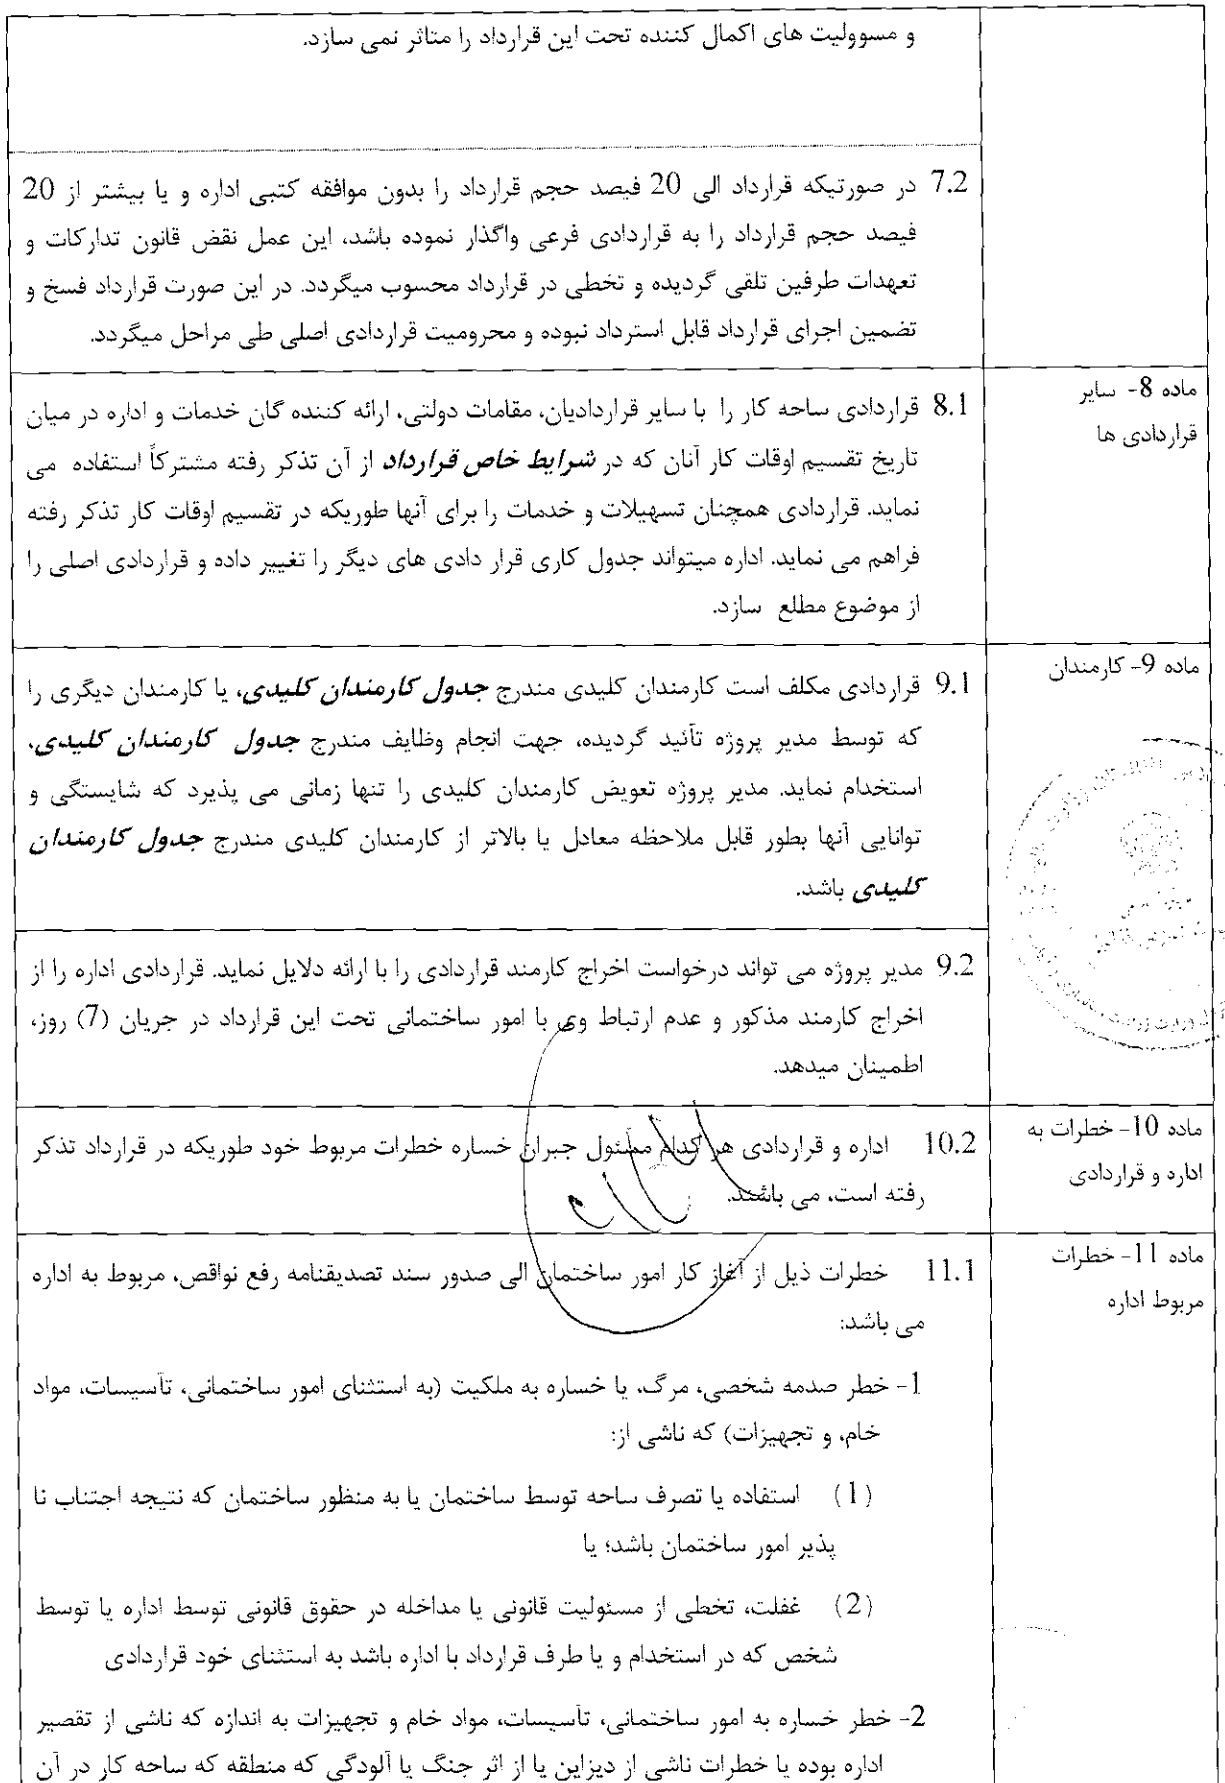 و مسوولیت های اکمال کننده تحت این قرارداد را متاثر نمی سازد.
7.2 در صورتیکه قرارداد الی 20 فیصد حجم قرارداد را بدون موافقه کتبی اداره و یا بیشتر از 20
فیصد حجم قرارداد را به قراردادی فرعی واگذار نموده باشد، این عمل نقض قانون تدارکات و
تعهدات طرفین تلقی گردیده و تخطی در قرارداد محسوب میگردد. در این صورت قرارداد فسخ و
تضمین اجرای قرارداد قابل استرداد نبوده و محرومیت قراردادی اصلی طی مراحل میگردد.
ماده 8- سایر
قراردادی ها
8.1 قراردادی ساحه کار را با سایر قراردادیان، مقامات دولتی، ارائه کننده گان خدمات و اداره در میان
تاریخ تقسیم اوقات کار آنان که در شرایط خاص قرارداد از آن تذکر رفته مشترکاً استفاده می
نماید. قراردادی همچنان تسهیلات و خدمات را برای آنها طوریکه در تقسیم اوقات کار تذکر رفته
فراهم می نماید. اداره میتواند جدول کاری قرار دادی های دیگر را تغییر داده و قراردادی اصلی را
از موضوع مطلع سازد.
ماده 9- کارمندان
9.1 قراردادی مکلف است کارمندان کلیدی مندرج جدول کارمندان کلیدی، یا کارمندان دیگری را
که توسط مدیر پروژه تأئید گردیده، جهت انجام وظایف مندرج جدول کارمندان کلیدی،
استخدام نماید. مدیر پروژه تعویض کارمندان کلیدی را تنها زمانی می پذیرد که شایستگی و
توانایی آنها بطور قابل ملاحظه معادل یا بالاتر از کارمندان کلیدی مندرج جدول کارمندان
کلیدی باشد.
9.2 مدیر پروژه می تواند درخواست اخراج کارمند قراردادی را با ارائه دلایل نماید. قراردادی اداره را از
اخراج کارمند مذکور و عدم ارتباط وی با امور ساختمانی تحت این قرارداد در جریان (7) روز،
اطمینان میدهد.
ماده 10- خطرات به
اداره و قراردادی
10.2 اداره و قراردادی هر کدام مسئول جبران خساره خطرات مربوط خود طوریکه در قرارداد تذکر
رفته است، می باشند.
ماده 11- خطرات
مربوط اداره
11.1 خطرات ذیل از آغاز کار امور ساختمان الی صدور سند تصدیقنامه رفع نواقص، مربوط به اداره
می باشد:
1- خطر صدمه شخصی، مرگ، یا خساره به ملکیت (به استثنای امور ساختمانی، تأسیسات، مواد
خام، و تجهیزات) که ناشی از:
(1) استفاده یا تصرف ساحه توسط ساختمان یا به منظور ساختمان که نتیجه اجتناب نا
پذیر امور ساختمان باشد؛ یا
(2) غفلت، تخطی از مسئولیت قانونی یا مداخله در حقوق قانونی توسط اداره یا توسط
شخص که در استخدام و یا طرف قرارداد با اداره باشد به استثنای خود قراردادی
2- خطر خساره به امور ساختمانی، تأسیسات، مواد خام و تجهیزات به اندازه که ناشی از تقصیر
اداره بوده یا خطرات ناشی از دیزاین یا از اثر جنگ یا آلودگی که منطقه که ساحه کار در آن